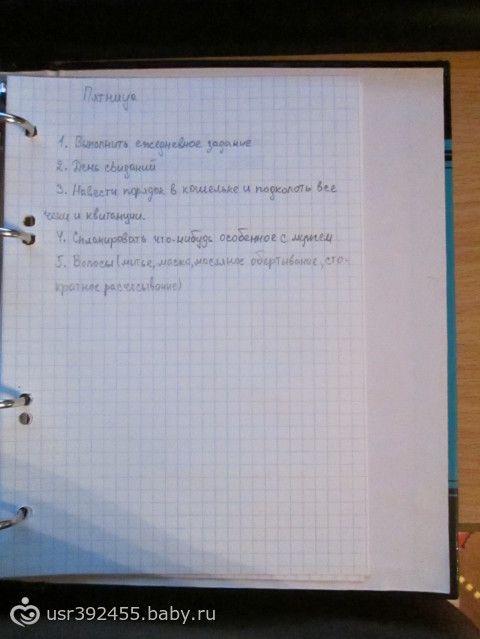 Пятница
1. Выполнить ежедневное задание
2. День свиданий
3. Навести порядок в кошельке и подколоть все
чеки и квитанции.
4. Спланировать что-нибудь особенное с мужем
5. Волосы (мытье, маска, масляное обертывание, сто-
кратное расчесывание)
usr392455.baby.ru